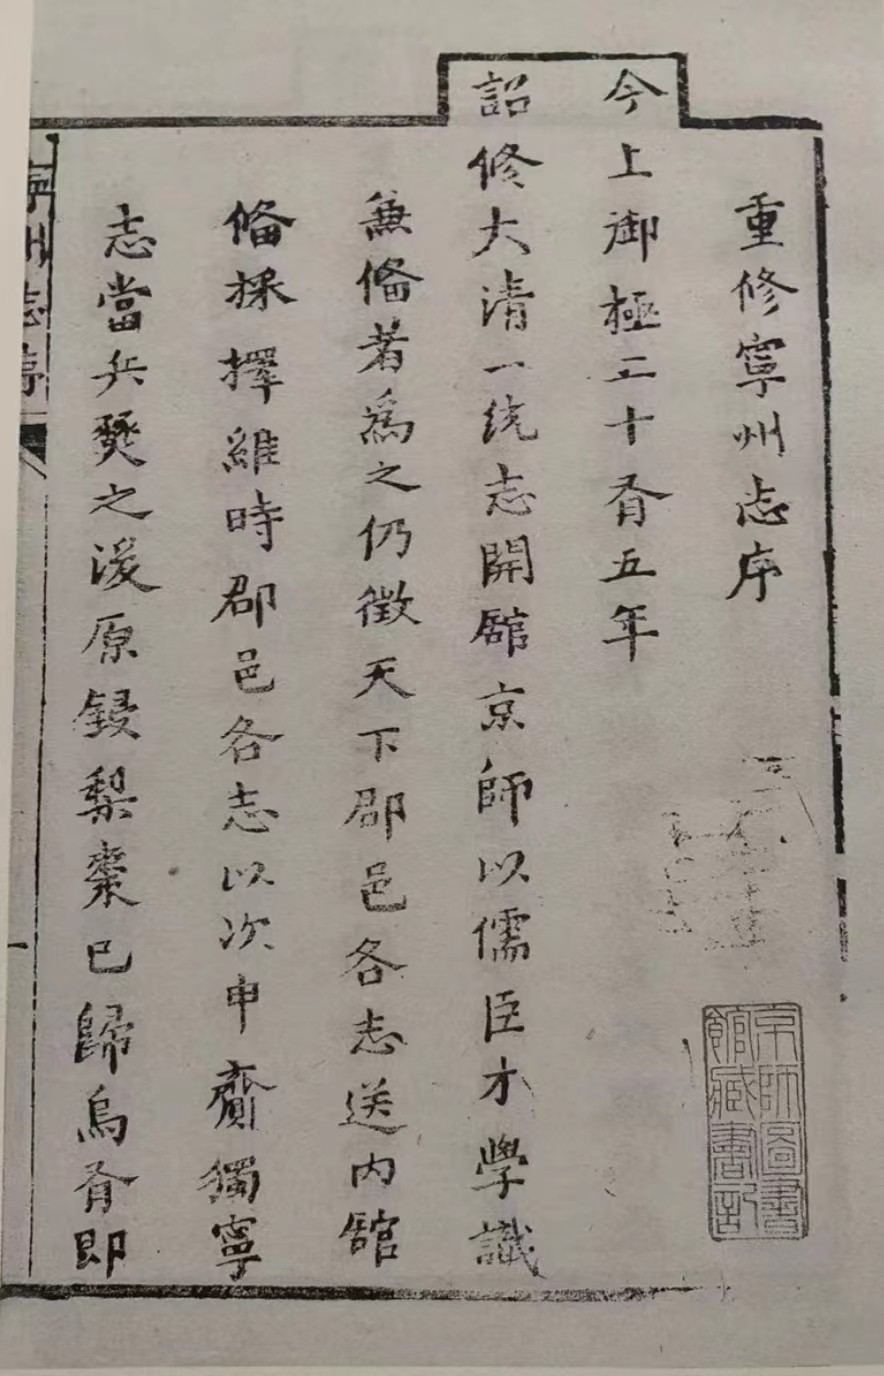 重修寧州志序
京師圖書
館藏書記
今上御極二十有五年
詔修大清一統志開舘京師以儒臣才學識
兼俻者為之仍徵天下郡邑各志送内舘
俻採擇維時郡邑各志以次申齎獨寧
志當兵燹之後原鋟梨棗已歸烏有即
寧州志序
一